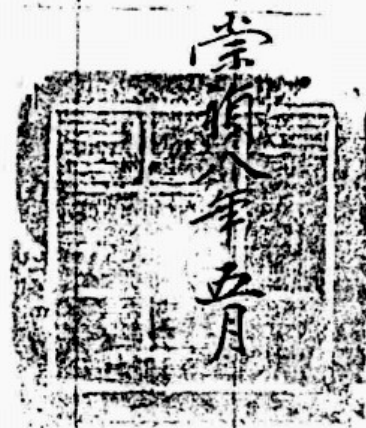 崇禎八年五月